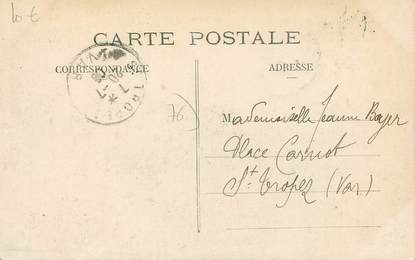 10 €
CARTE POSTALE
CORRESPONDANCE
ADRESSE
76
Mademoiselle Jeanne
Place Carnot
St Tropez (Var)